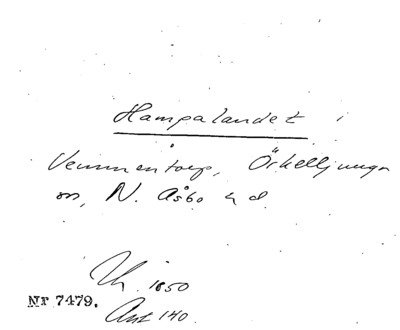 Hampalandet i
Vemmentorp, Örkelljunga
sn, N. Åsbo hd
Nr 7479.
1850
Ant 140.